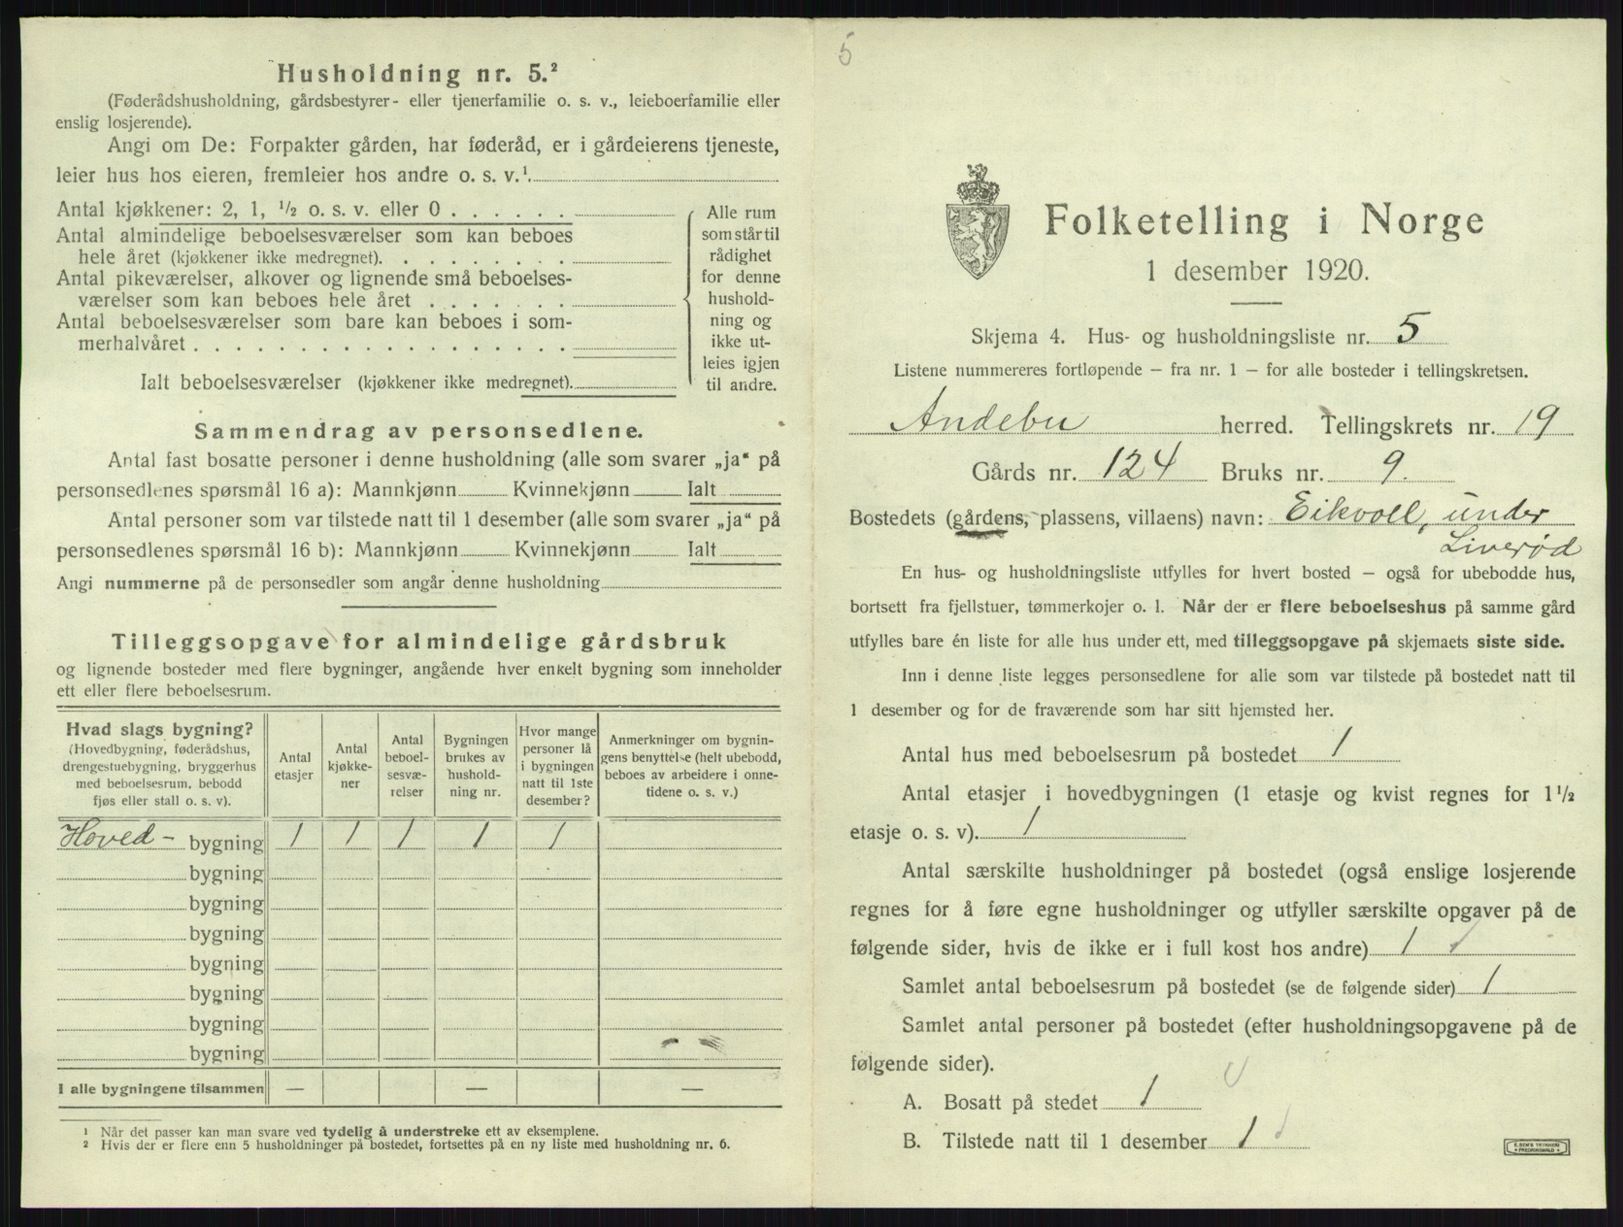 Husholdning nr. 5.²
(Føderådshusholdning, gårdsbestyrer- eller tjenerfamilie o. s. v., leieboerfamilie eller
enslig losjerende).
Angi om De: Forpakter gården, har føderåd, er i gårdeierens tjeneste,
leier hus hos eieren, fremleier hos andre o. s. v.¹.
Antal kjøkkener: 2, 1, ½ o. s. v. eller 0 . . . . . .
Antal almindelige beboelsesværelser som kan beboes
hele året (kjøkkener ikke medregnet). . . . . . . . .
Antal pikeværelser, alkover og lignende små beboelses-
værelser som kan beboes hele året . . . . . . .
Antal beboelsesværelser som bare kan beboes i som-
merhalvåret . . . . . . . . . . . . . . . . . .
Ialt beboelsesværelser (kjøkkener ikke medregnet).
Alle rum
som står til
rådighet
for denne
hushold-
ning og
ikke ut-
leies igjen
til andre.
Sammendrag av personsedlene.
Antal fast bosatte personer i denne husholdning (alle som svarer „ja“ på
personsedlenes spørsmål 16 a): Mannkjønn Kvinnekjønn Ialt
Antal personer som var tilstede natt til 1 desember (alle som svarer „ja“ på
personsedlenes spørsmål 16 b): Mannkjønn Kvinnekjønn Ialt
Angi nummerne på de personsedler som angår denne husholdning
Tilleggsopgave for almindelige gårdsbruk
og lignende bosteder med flere bygninger, angående hver enkelt bygning som inneholder
ett eller flere beboelsesrum.
Hvad slags bygning?
(Hovedbygning, føderådshus,
drengestuebygning, bryggerhus
med beboelsesrum, bebodd
fjøs eller stall o. s. v).
Antal
etasjer
Antal
kjøkke-
ner
Antal
beboel-
sesvæ-
relser
Bygningen
brukes av
hushold-
ning nr.
Hvor mange
personer lå
i bygningen
natt til 1ste
desember?
Anmerkninger om bygnin-
gens benyttelse (helt ubebodd,
beboes av arbeidere i onne-
tidene o. s. v.)
Hoved- bygning 1 1 1 1 1
bygning
bygning
bygning
bygning
bygning
bygning
bygning
I alle bygningene tilsammen — — —
¹ Når det passer kan man svare ved tydelig å understreke ett av eksemplene.
² Hvis der er flere enn 5 husholdninger på bostedet, fortsettes på en ny liste med husholdning nr. 6.
5
Folketelling i Norge
1 desember 1920.
Skjema 4. Hus- og husholdningsliste nr. 5
Listene nummereres fortløpende — fra nr. 1 — for alle bosteder i tellingskretsen.
Andebu herred. Tellingskrets nr. 19
Gårds nr. 124 Bruks nr. 9.
Bostedets (gårdens, plassens, villaens) navn: Eikvoll, under
Liverød
En hus- og husholdningsliste utfylles for hvert bosted — også for ubebodde hus,
bortsett fra fjellstuer, tømmerkojer o. l. Når der er flere beboelseshus på samme gård
utfylles bare én liste for alle hus under ett, med tilleggsopgave på skjemaets siste side.
Inn i denne liste legges personsedlene for alle som var tilstede på bostedet natt til
1 desember og for de fraværende som har sitt hjemsted her.
Antal hus med beboelsesrum på bostedet 1
Antal etasjer i hovedbygningen (1 etasje og kvist regnes for 1½
etasje o. s. v). 1
Antal særskilte husholdninger på bostedet (også enslige losjerende
regnes for å føre egne husholdninger og utfyller særskilte opgaver på de
følgende sider, hvis de ikke er i full kost hos andre) 1
Samlet antal beboelsesrum på bostedet (se de følgende sider) 1
Samlet antal personer på bostedet (efter husholdningsopgavene på de
følgende sider).
A. Bosatt på stedet 1
B. Tilstede natt til 1 desember 1